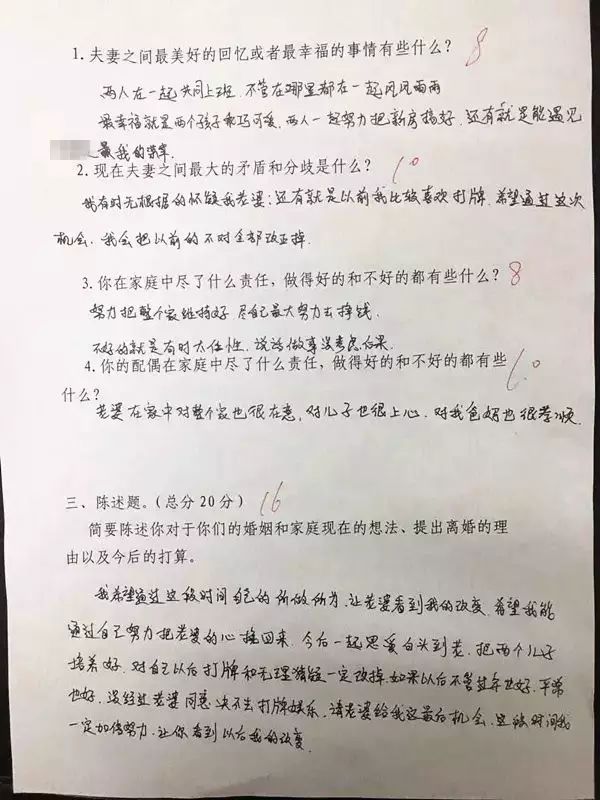 1. 夫妻之间最美好的回忆或者最幸福的事情有些什么? 8
两人在一起共同上班.不管在哪里都在一起风风雨雨
最幸福就是两个孩子乖巧可爱.两人一起努力把新房搞好.还有就是能遇见
是我的荣幸.
2. 现在夫妻之间最大的矛盾和分歧是什么? 10
我有时无根据的怀疑我老婆;还有就是以前我比较喜欢打牌.希望通过这次
机会.我会把以前的不对全部改正掉.
3. 你在家庭中尽了什么责任，做得好的和不好的都有些什么? 8
努力把整个家维持好.尽自己最大努力去挣钱.
不好的就是有时太任性.说话做事没考虑后果.
4. 你的配偶在家庭中尽了什么责任，做得好的和不好的都有些 10
什么?
老婆在家中对整个家也很在意,对儿子也很上心.对我爸妈也很孝顺.
三、陈述题。(总分20分) 16
简要陈述你对于你们的婚姻和家庭现在的想法、提出离婚的理
由以及今后的打算。
我希望通过这段时间自己的所做所为.让老婆看到我的改变.希望我能
通过自己努力把老婆的心挽回来.今后一起恩爱白头到老.把两个儿子
培养好.对自己以后打牌和无理猜疑一定改掉.如果以后不管过年也好.平常
也好.没经过老婆同意决不去打牌娱乐.请老婆给我这最后机会.这段时间我
一定加倍努力.让你看到以后我的改变.